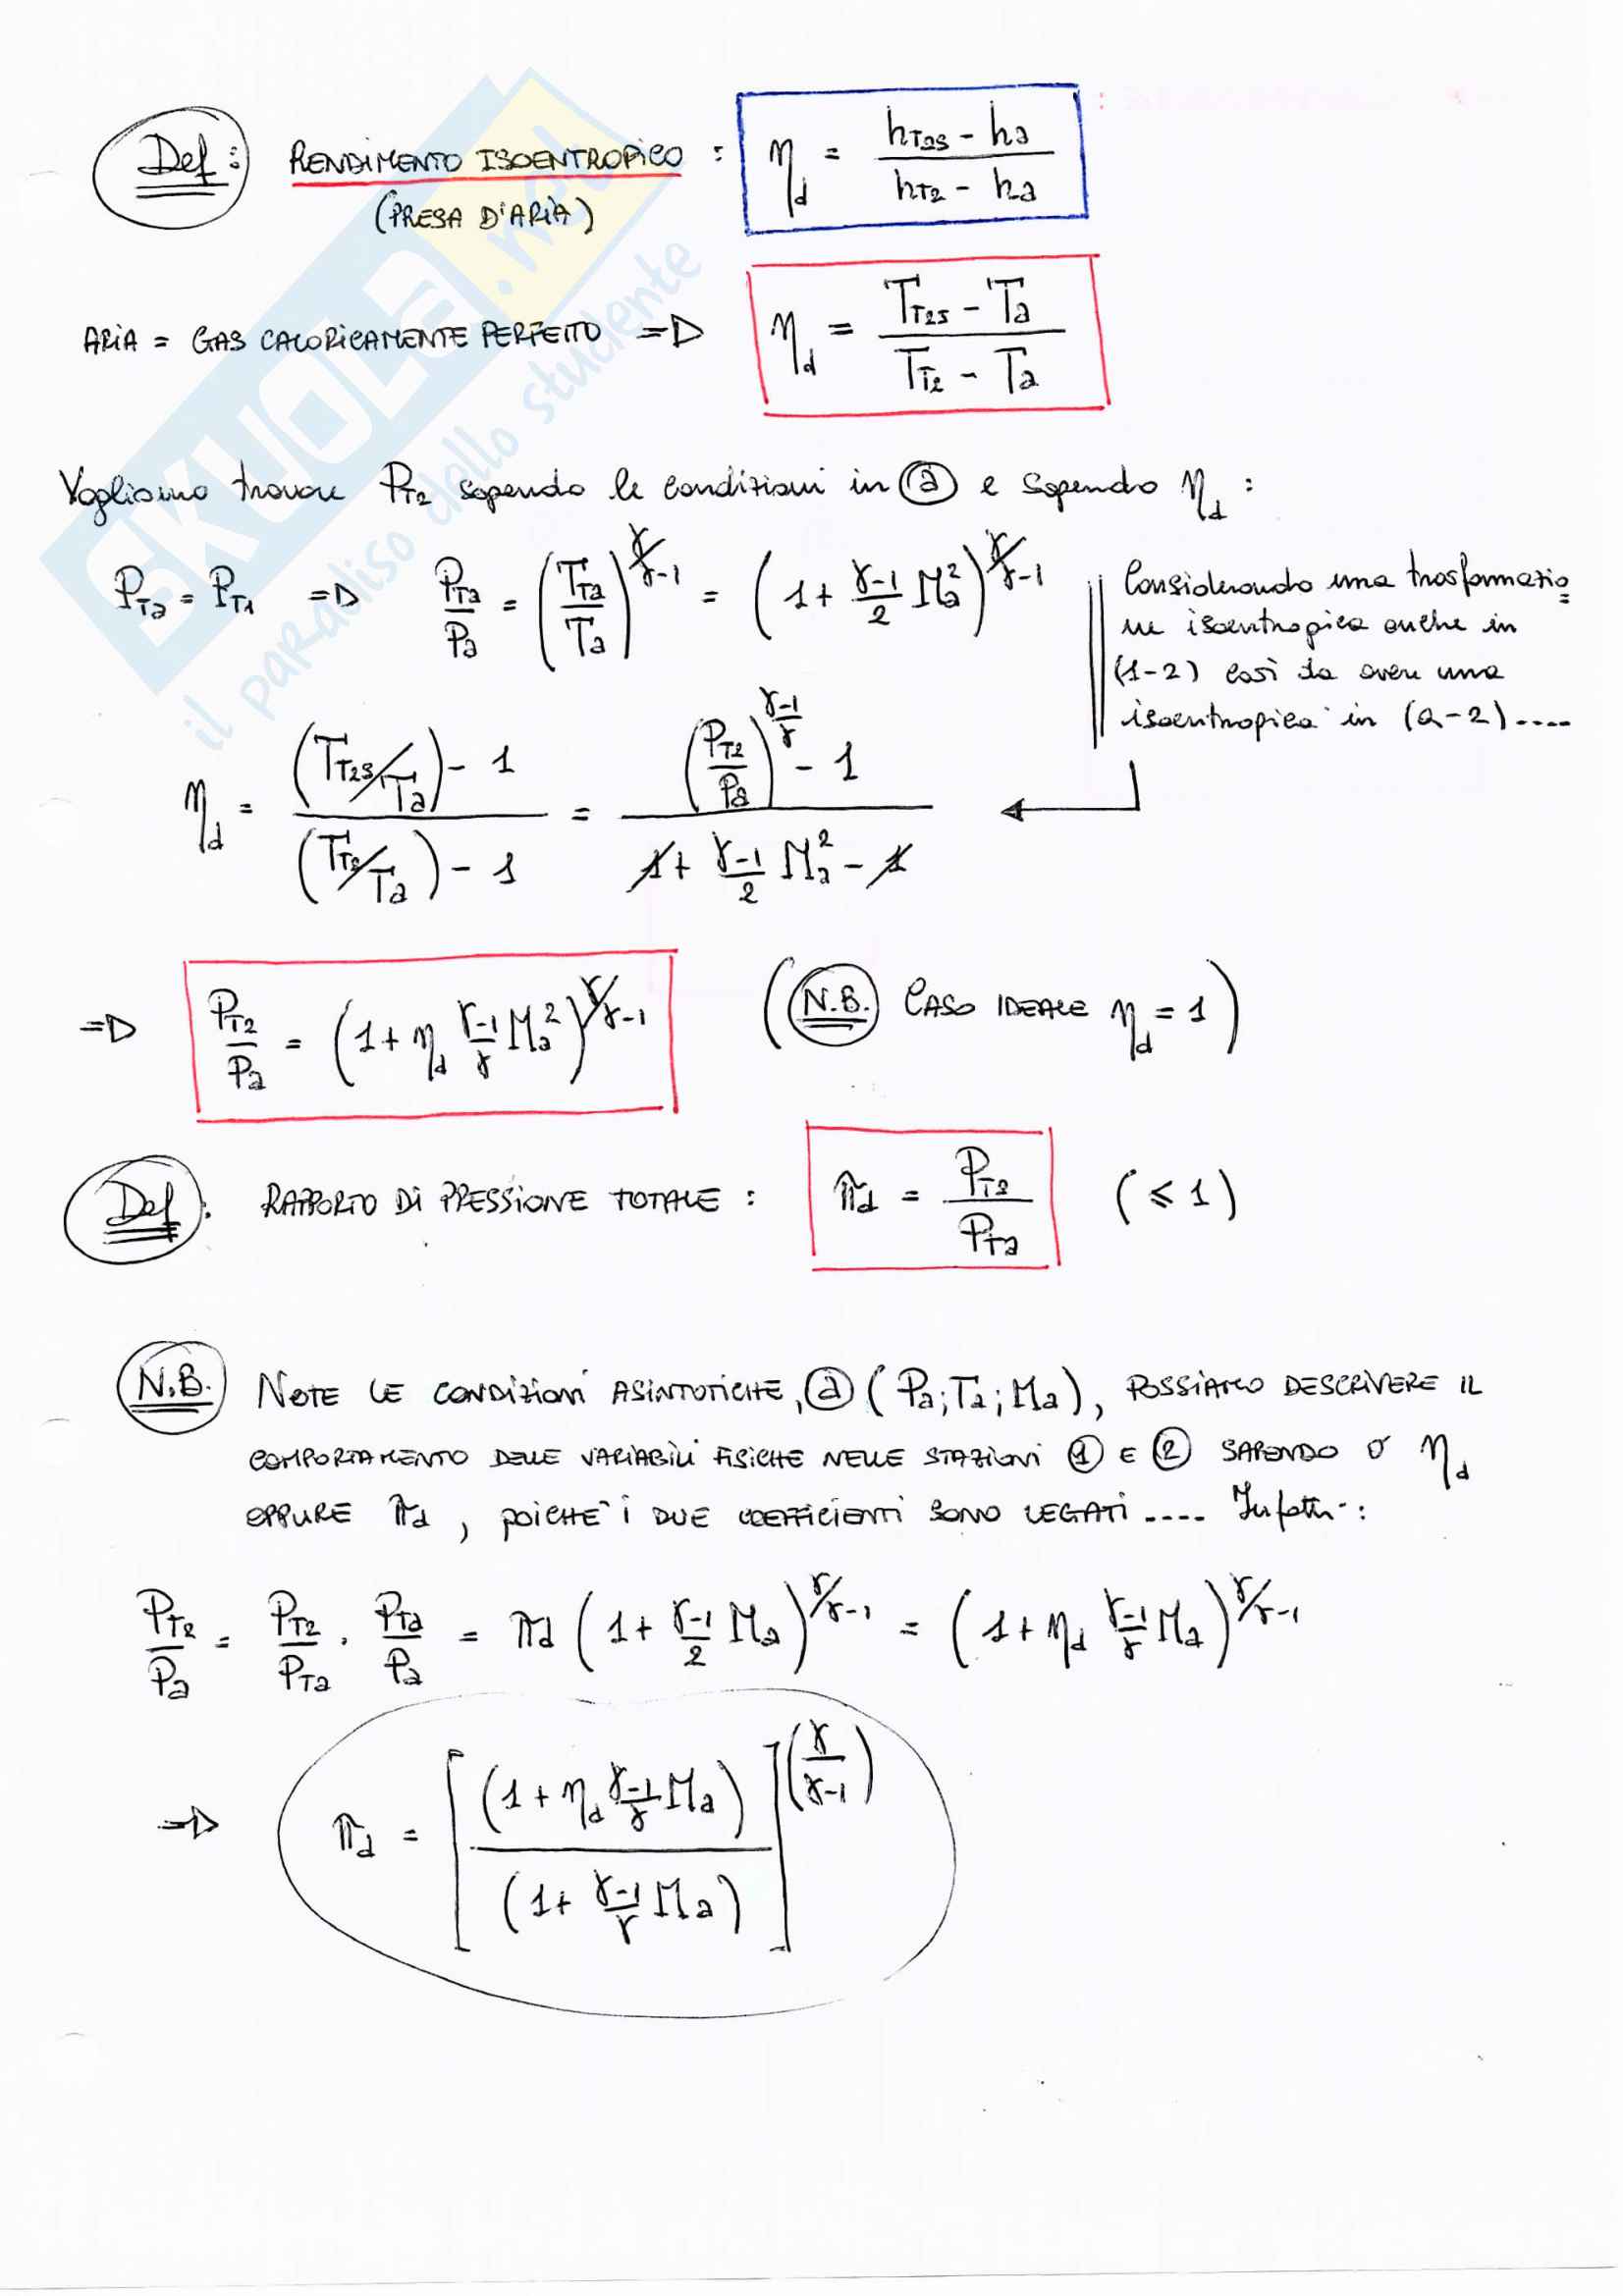 Def: RENDIMENTO ISOENTROPICO : η_d = (h_T2S - h_a) / (h_T2 - h_a)
(PRESA D'ARIA)
ARIA = GAS CALORICAMENTE PERFETTO => η_d = (T_T2S - T_a) / (T_T2 - T_a)
Vogliamo trovare P_T2 sapendo le condizioni in (a) e sapendo η_d :
P_Ta = P_T1 => P_Ta/P_a = (T_Ta/T_a)^(γ/γ-1) = (1 + (γ-1)/2 M_a^2)^(γ/γ-1)
Considerando una trasformazio=
ne isoentropica anche in
(1-2) così da avere una
isoentropica in (a-2)....
η_d = ((T_T2S/T_a) - 1) / ((T_T2/T_a) - 1) = ((P_T2/P_a)^((γ-1)/γ) - 1) / (1 + (γ-1)/2 M_a^2 - 1)
=> P_T2/P_a = (1 + η_d (γ-1)/γ M_a^2)^(γ/γ-1) (N.B. CASO IDEALE η_d = 1)
Def: RAPPORTO DI PRESSIONE TOTALE : π_d = P_T2/P_Ta (≤ 1)
N.B. NOTE LE CONDIZIONI ASINTOTICHE, (a) (P_a; T_a; M_a), POSSIAMO DESCRIVERE IL
COMPORTAMENTO DELLE VARIABILI FISICHE NELLE STAZIONI (1) E (2) SAPENDO O' η_d
OPPURE π_d, POICHE' I DUE COEFFICIENTI SONO LEGATI.... Infatti:
P_T2/P_a = P_T2/P_Ta · P_Ta/P_a = π_d (1 + (γ-1)/2 M_a)^(γ/γ-1) = (1 + η_d (γ-1)/γ M_a)^(γ/γ-1)
=> π_d = [(1 + η_d (γ-1)/γ M_a) / (1 + (γ-1)/γ M_a)]^(γ/(γ-1))
SKUOLA.net
il paradiso dello studente